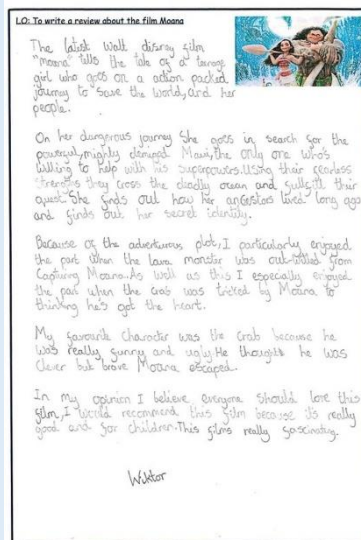 LO: To write a review about the film Moana
The latest Walt disney film
"moana" tells the tale of a teenage
girl who goes on a action packed
journey to save the world, and her
people.
On her dangerous journey She goes in search for the
powerful, mighty demigod Maui, the only one who's
willing to help with his superpowers. Using their fearless
strengths they cross the deadly ocean and fullfill their
quest. She finds out how her angestors lived long ago
and finds out her secret identity.
Because of the adventurous plot, I particularly enjoyed
the part when the lava monster was out-witted from
Capturing Moana. As well as this I especially enjoyed
the part when the crab was tricked by Moana to
thinking he's got the heart.
My favourite character was the crab because he
was really funny and ugly. He thought he was
clever but brave Moana escaped.
In my opinion I believe everyone should love this
film, I would recommend this film because it's really
good and for children. This films really fascinating.
Wiktor